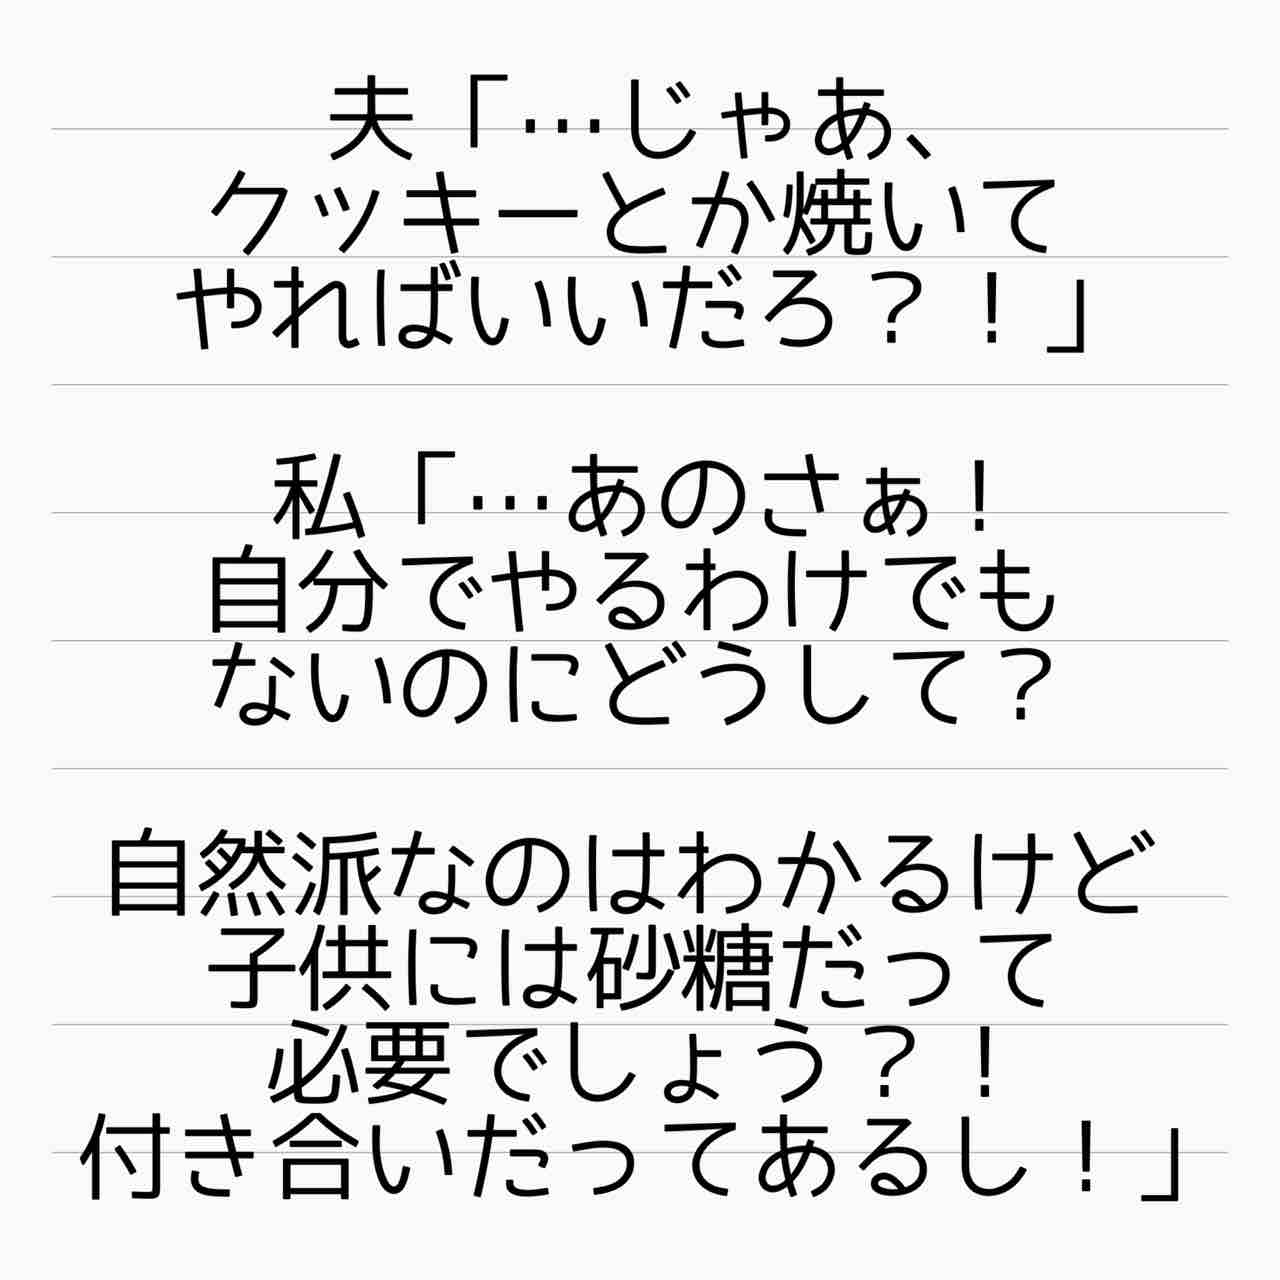 夫「…じゃあ、
クッキーとか焼いて
やればいいだろ？！」
私「…あのさぁ！
自分でやるわけでも
ないのにどうして？
自然派なのはわかるけど
子供には砂糖だって
必要でしょう？！
付き合いだってあるし！」